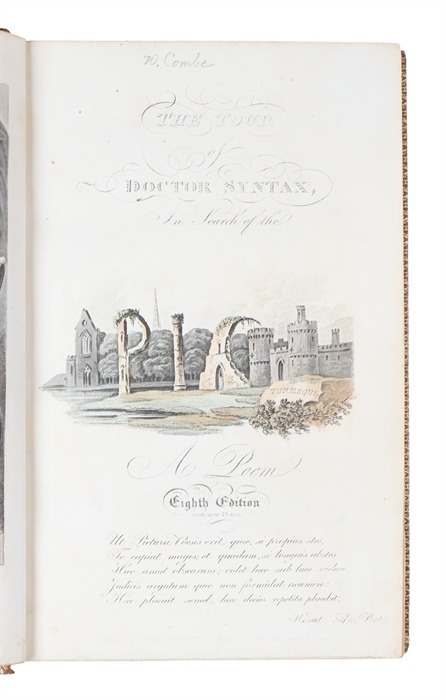 W. Combe
THE TOUR
of
DOCTOR SYNTAX,
In Search of the
PIC
TURESQUE
A Poem
Eighth Edition
with new Plates
Ut Pictura Poesis erit; quæ, si propius stes,
Te capiat magis; et quædam, si longius abstes
Hæc amat obscurum; volet hæc sub luce videri
Judicis argutum quæ non formidat acumen:
Hæc placuit semel, hæc decies repetita placebit.
Horat: Ars Poet: